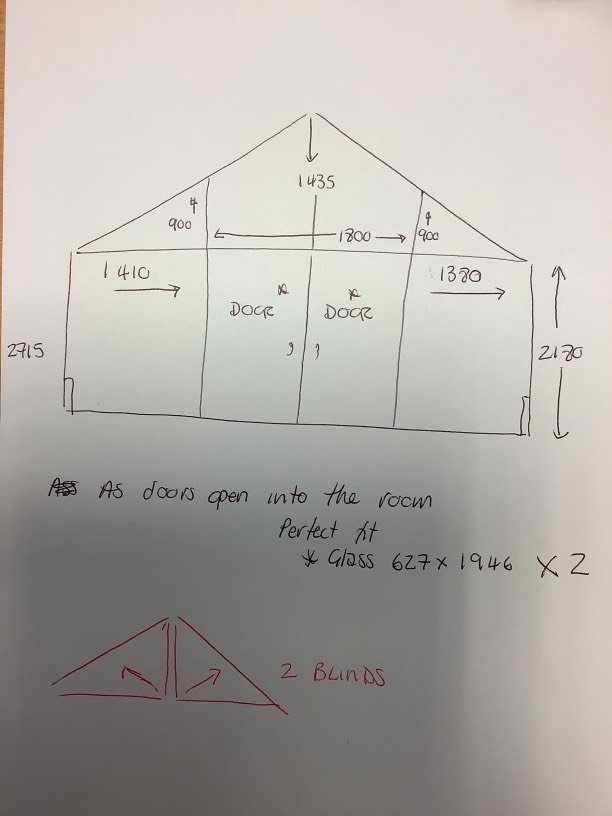 1435
900
1800
900
1410
1380
DOOR
DOOR
2715
2180
As doors open into the room
Perfect fit
* Glass 627 x 1946 x 2
2 BLINDS